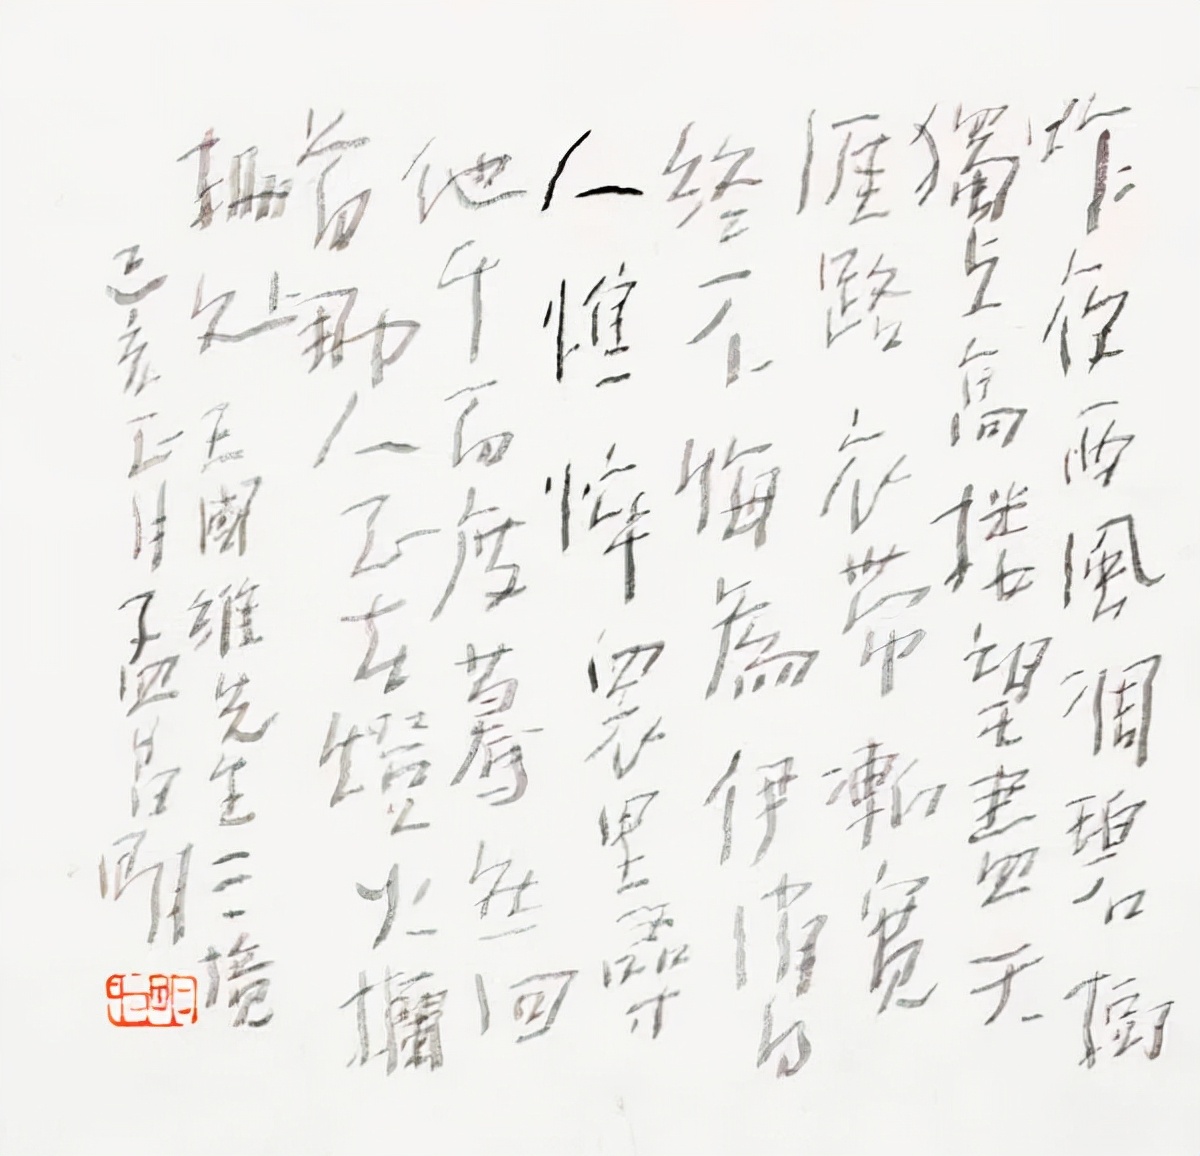 昨夜西風凋碧樹
獨上高樓望盡天
涯路衣帶漸寬
終不悔為伊消得
人憔悴眾里尋
他千百度驀然回
首那人正在燈火欄
珊处王國維先生三境
己亥正月孟昌明